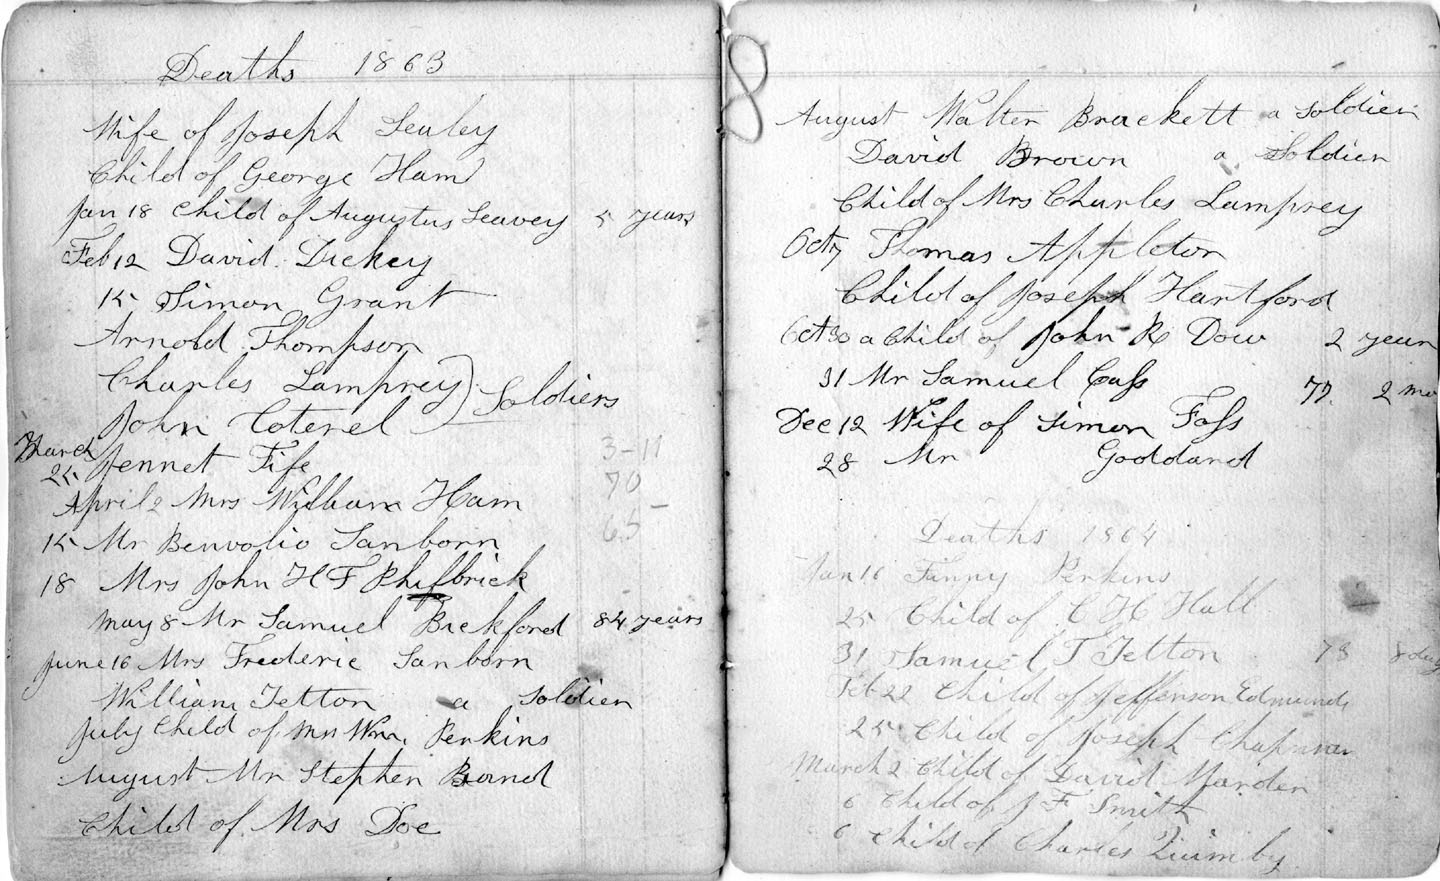 Deaths 1863
Wife of Joseph Sealey
Child of George Ham
Jan 18 Child of Augustus Seavey 5 years
Feb 12 David Dickey
15 Simon Grant
Arnold Thompson
Charles Lamprey
Soldiers
John Coterel
March
25 Jennet Fife 3-11
April 2 Mrs William Ham 70
15 Mr Benvolio Sanborn 65
18 Mrs John H F Philbrick
May 8 Mr Samuel Bickford 84 years
June 16 Mrs Frederic Sanborn
William Tetton a Soldier
July Child of Mr Wm. Perkins
August Mr Stephen Band
Child of Mrs Doe
August Walter Brackett a Soldier
David Brown a Soldier
Child of Mrs Charles Lamprey
Oct 7 Thomas Appleton
Child of Joseph Hartford
Oct 30 a Child of John R Dow 2 years
31 Mr Samuel Cass 77. 2 mo
Dec 12 Wife of Simon Foss
28 Mr Goddard
Deaths 1864
Jan 16 Fanny Perkins
25 Child of C H Hall
31 Samuel T Tetton 78
Feb 22 Child of Jefferson Edmunds
25 Child of Joseph Chapman
March 2 Child of David Marden
6 Child of J F Smith
6 Child of Charles Quimby